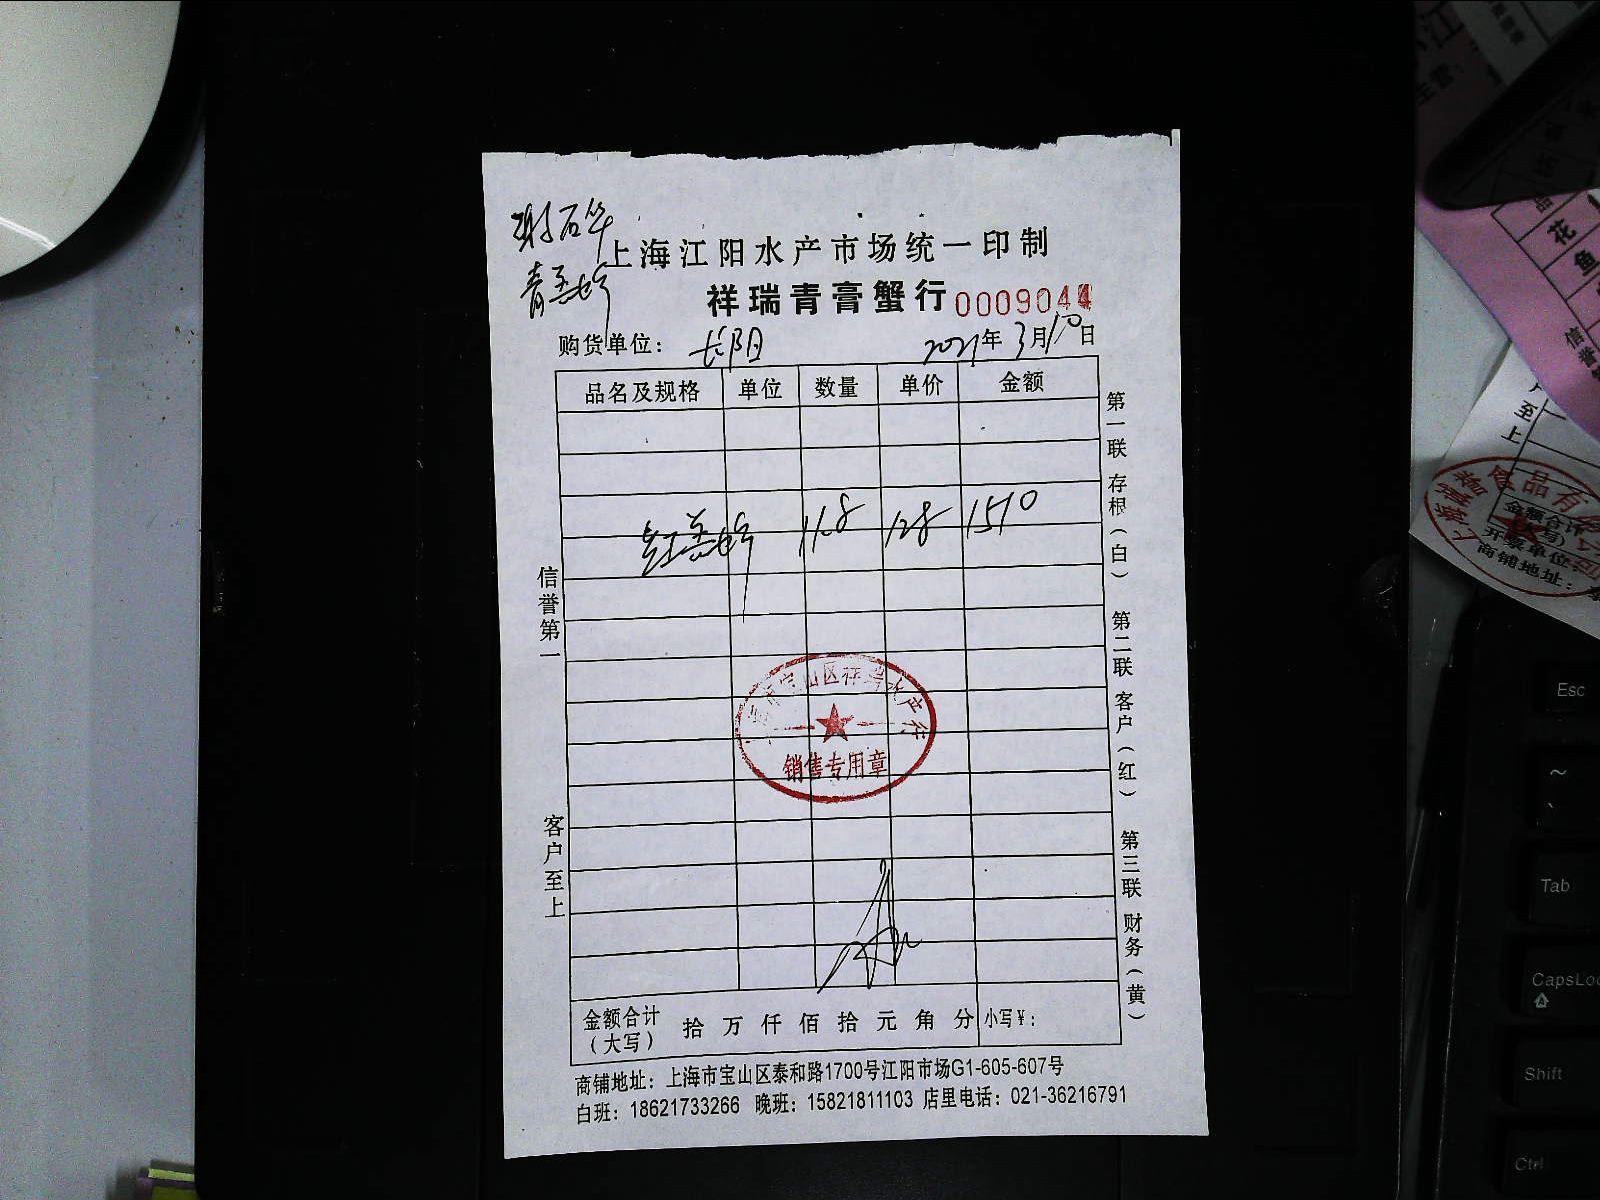 谢石华
上海江阳水产市场统一印制
青膏蟹
祥瑞青膏蟹行 0009044
购货单位： 长阳 2021年3月10日
品名及规格 单位 数量 单价 金额
红膏蟹 11.8 128 1510
信誉第一
客户至上
第一联 存根（白） 第二联 客户（红） 第三联 财务（黄）
市宝山区祥 水产行
销售专用章
金额合计（大写） 拾 万 仟 佰 拾 元 角 分 小写¥：
商铺地址：上海市宝山区泰和路1700号江阳市场G1-605-607号
白班：18621733266 晚班：15821811103 店里电话：021-36216791
主营：
品
花
鱼
信誉
户至上
食品有
金额合计
写)
开票单位：
商铺地址：
Esc
~
Tab
CapsLoc
Shift
Ctrl